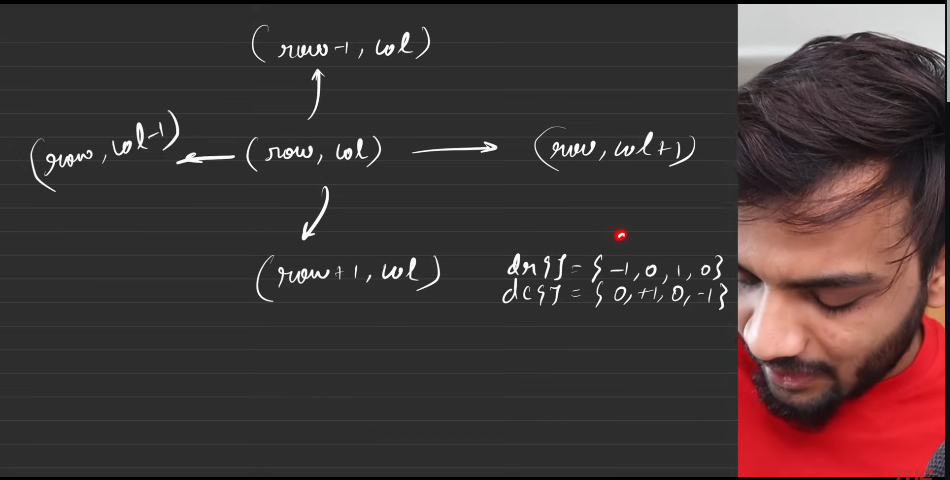 (row-1, col)
(row, col-1)
(row, col)
(row, col+1)
(row+1, col)
dr[] = { -1, 0, 1, 0}
dc[] = { 0, +1, 0, -1}